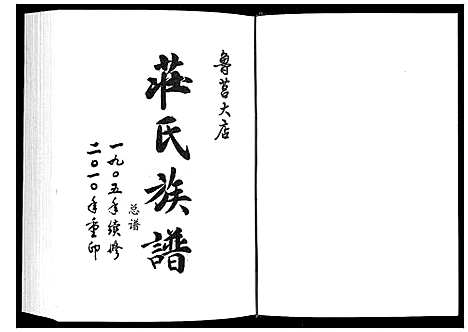 魯莒大店
莊氏族譜
总谱
一九〇五年續修
二〇一〇年重印